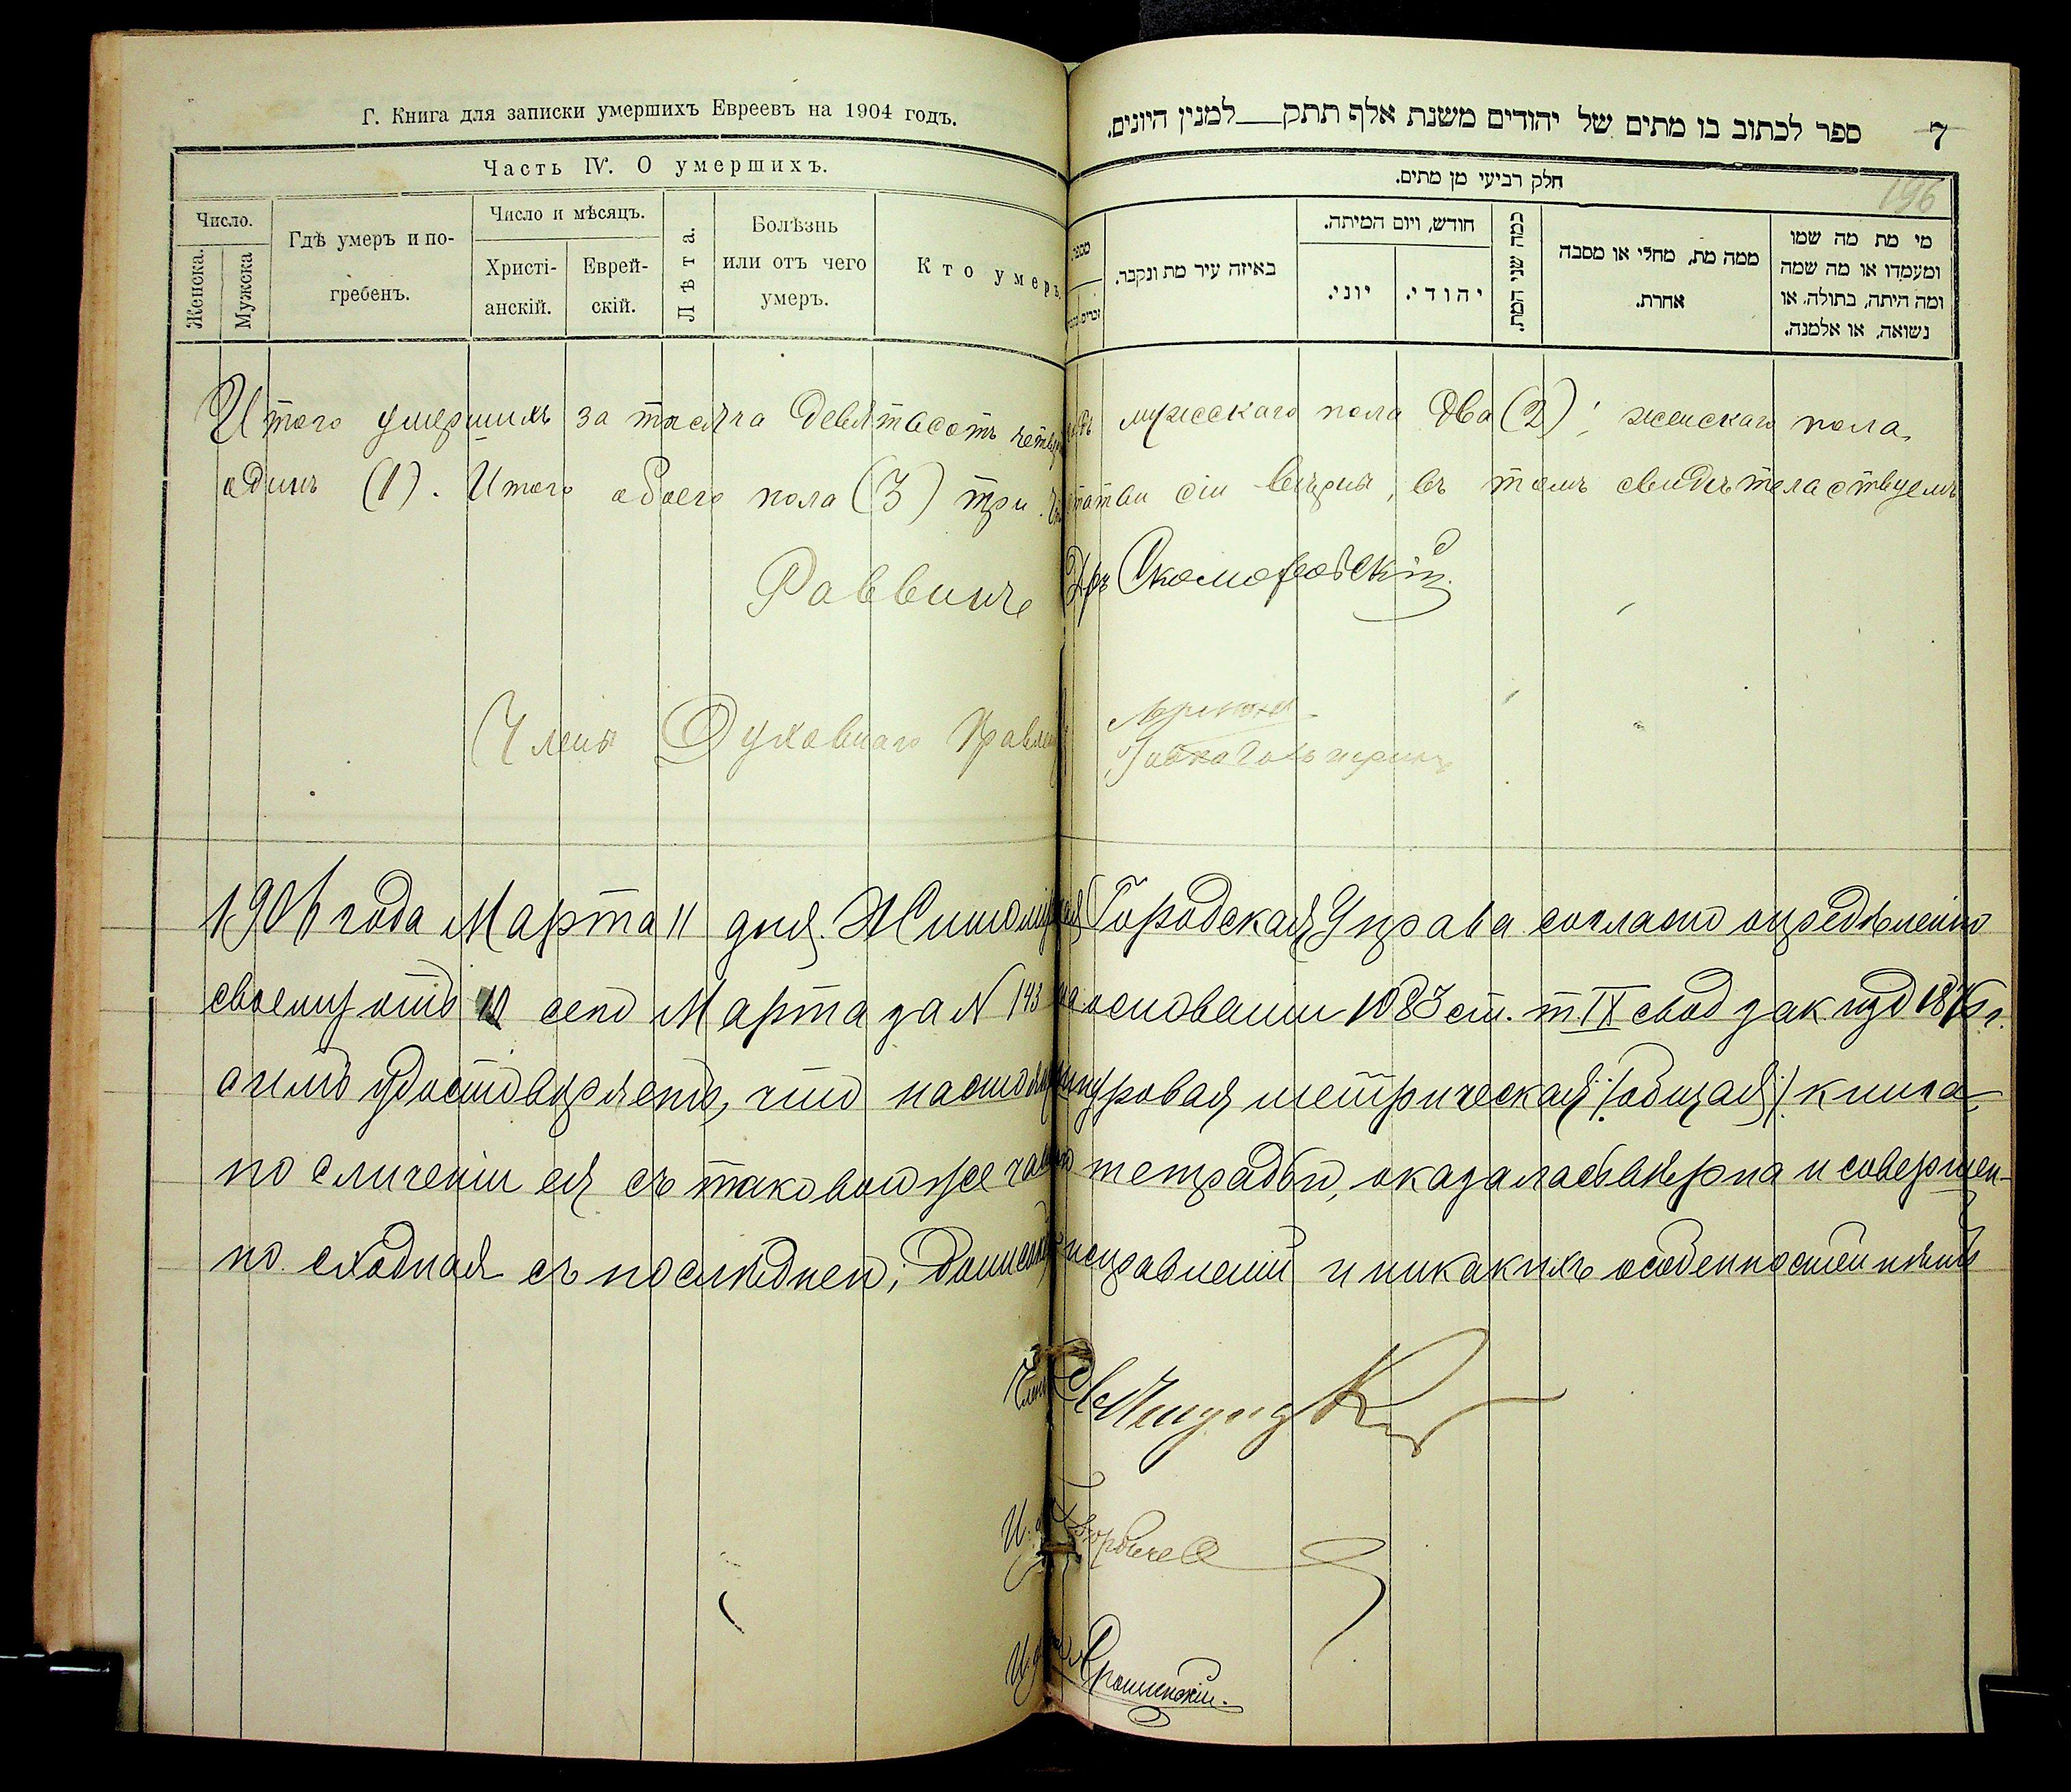 Г. Книга для записки умершихъ Евреевъ на 1904 годъ.
Часть IV. О умершихъ.
Число.
Женска.
Мужска
Гдѣ умеръ и по-
гребенъ.
Число и мѣсяцъ.
Христі-
анскій.
Еврей-
скій.
Лѣта.
Болѣзнь
или отъ чего
умеръ.
Кто умеръ.
ספר לכתוב בו מתים של יהודים משנת אלף תתק למנין היונים.
7
196
חלק רביעי מן מתים.
מספר
זכרים
באיזה עיר מת ונקבר.
חודש, ויום המיתה.
יוני.
יהודי.
כמה שני המת.
ממה מת, מחלי או מסבה
אחרת.
מי מת מה שמו
ומעמדו או מה שמה
ומה היתה, בתולה, או
נשואה, או אלמנה.
Итого умершихъ за тысяча девятьсотъ четвер годъ мужескаго пола два (2); женскаго пола
одинъ (1). Итого обоего пола (3) три. статьи сіи вѣрны, въ томъ свидѣтельствуемъ
Раввинъ Др Скоморовскій
Члены Духовнаго Правленія
1906 года Марта 11 дня. Житомірская Городская Управа согласно опредѣленію
своему отъ 10 сего Марта за N 143 на основаніи 1083 ст. т. IX свод зак. изд 1876 г.
симъ удостовѣряетъ, что настоящая шнуровая метрическая /общая/ книга
по сличеніи ея съ таковою же тетрадью, оказалась вѣрна и совершен-
но сходная съ послѣдней; исправленій и никакихъ особенностей нѣтъ
Членъ